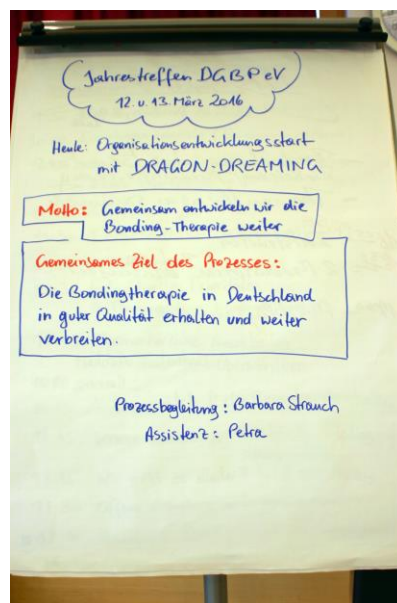 Jahrestreffen DGBP eV
12. u. 13. März 2016
Heute: Organisationsentwicklungsstart
mit DRAGON-DREAMING
Motto: Gemeinsam entwickeln wir die
Bonding-Therapie weiter
Gemeinsames Ziel des Prozesses:
Die Bondingtherapie in Deutschland
in guter Qualität erhalten und weiter
verbreiten.
Prozessbegleitung: Barbara Strauch
Assistenz: Petra